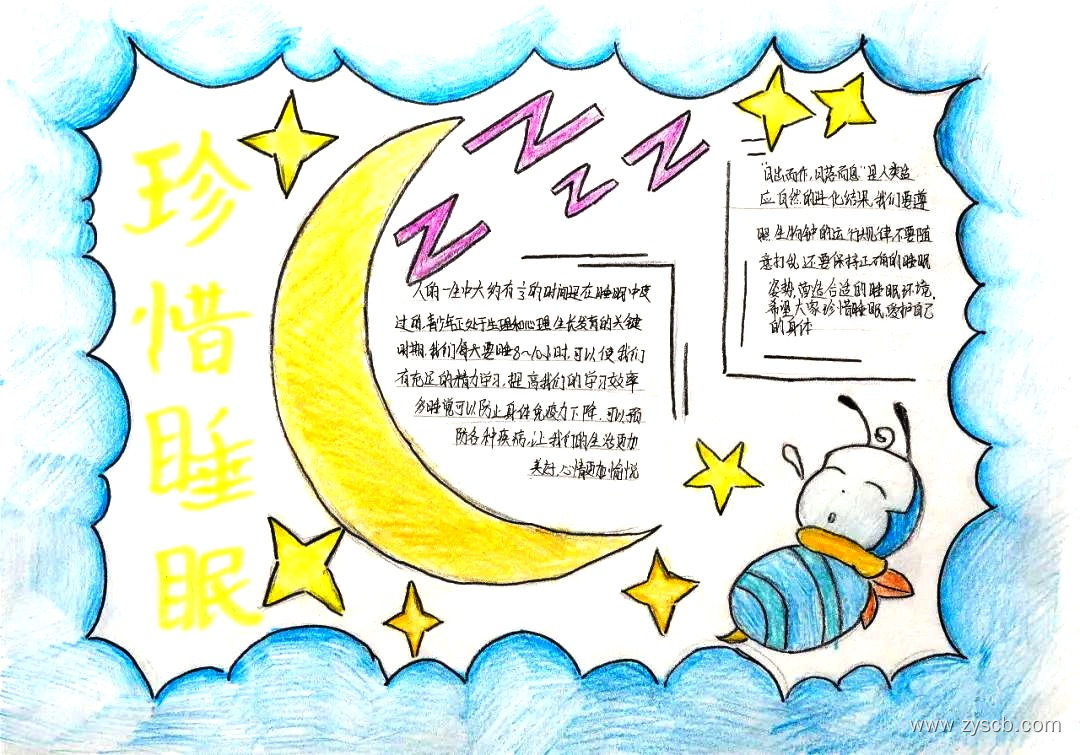 珍
惜
睡
眠
人的一生中大约有三分之一的时间是在睡眠中度
过的,青少年正处于生理和心理生长发育的关键
时期,我们每天要睡8~10小时,可以使我们
有充足的精力学习,提高我们的学习效率
多睡觉可以防止身体免疫力下降,可以预
防各种疾病,让我们的生活更加
美好,心情更加愉悦
“日出而作,日落而息”是人类适
应自然的进化结果,我们要遵
照生物钟的运行规律,不要随
意打乱,还要保持正确的睡眠
姿势,营造合适的睡眠环境.
希望大家珍惜睡眠,爱护自己
的身体
www.zyscb.com